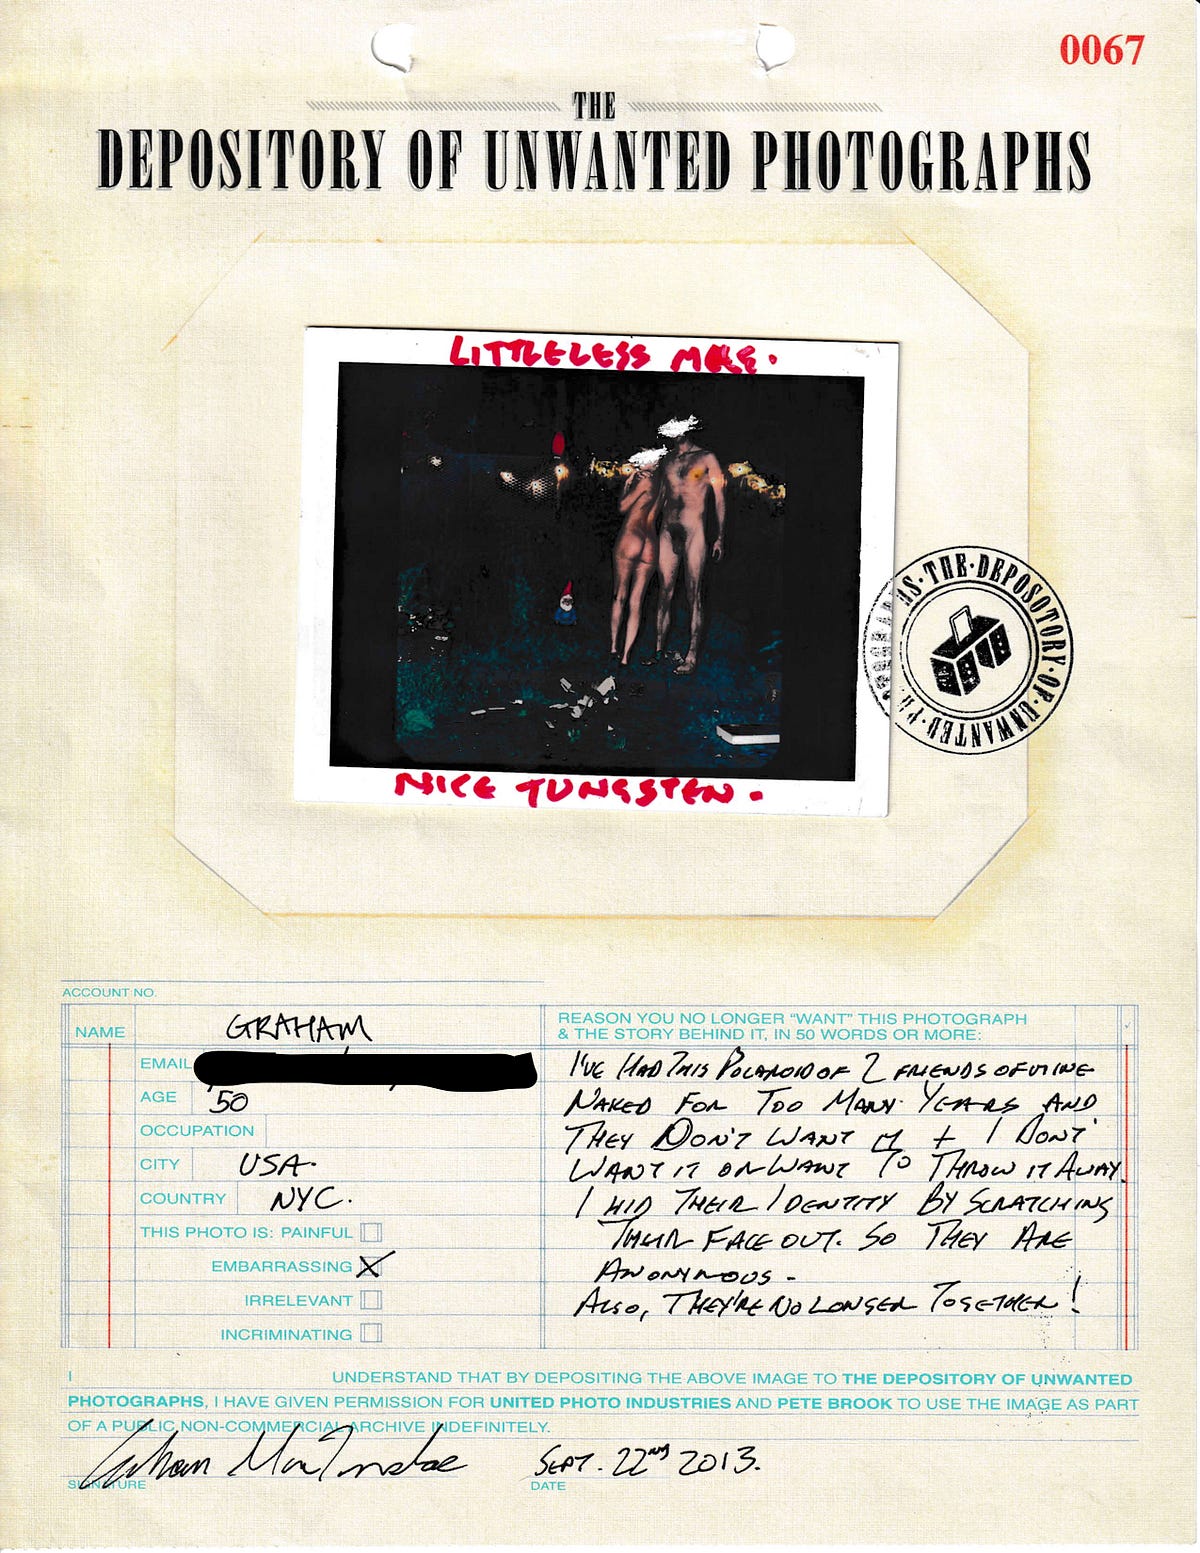 0067
THE
DEPOSITORY OF UNWANTED PHOTOGRAPHS
LITTLE LESS
NICE TUNGSTEN.
· THE · DEPOSOTORY · OF · UNWANTED ·
ACCOUNT NO.
NAME GRAHAM
EMAIL
AGE 50
OCCUPATION
CITY USA.
COUNTRY NYC.
THIS PHOTO IS: PAINFUL
EMBARRASSING X
IRRELEVANT
INCRIMINATING
REASON YOU NO LONGER "WANT" THIS PHOTOGRAPH
& THE STORY BEHIND IT, IN 50 WORDS OR MORE:
I'VE HAD THIS POLAROID OF 2 FRIENDS OF MINE
NAKED FOR TOO MANY YEARS AND
THEY DON'T WANT IT + I DON'T
WANT IT OR WANT TO THROW IT AWAY.
I HID THEIR IDENTITY BY SCRATCHING
THEIR FACE OUT. SO THEY ARE
ANONYMOUS -
ALSO, THEY'RE NO LONGER TOGETHER!
I UNDERSTAND THAT BY DEPOSITING THE ABOVE IMAGE TO THE DEPOSITORY OF UNWANTED
PHOTOGRAPHS, I HAVE GIVEN PERMISSION FOR UNITED PHOTO INDUSTRIES AND PETE BROOK TO USE THE IMAGE AS PART
OF A PUBLIC NON-COMMERCIAL ARCHIVE INDEFINITELY.
SEPT. 22ND 2013.
SIGNATURE DATE